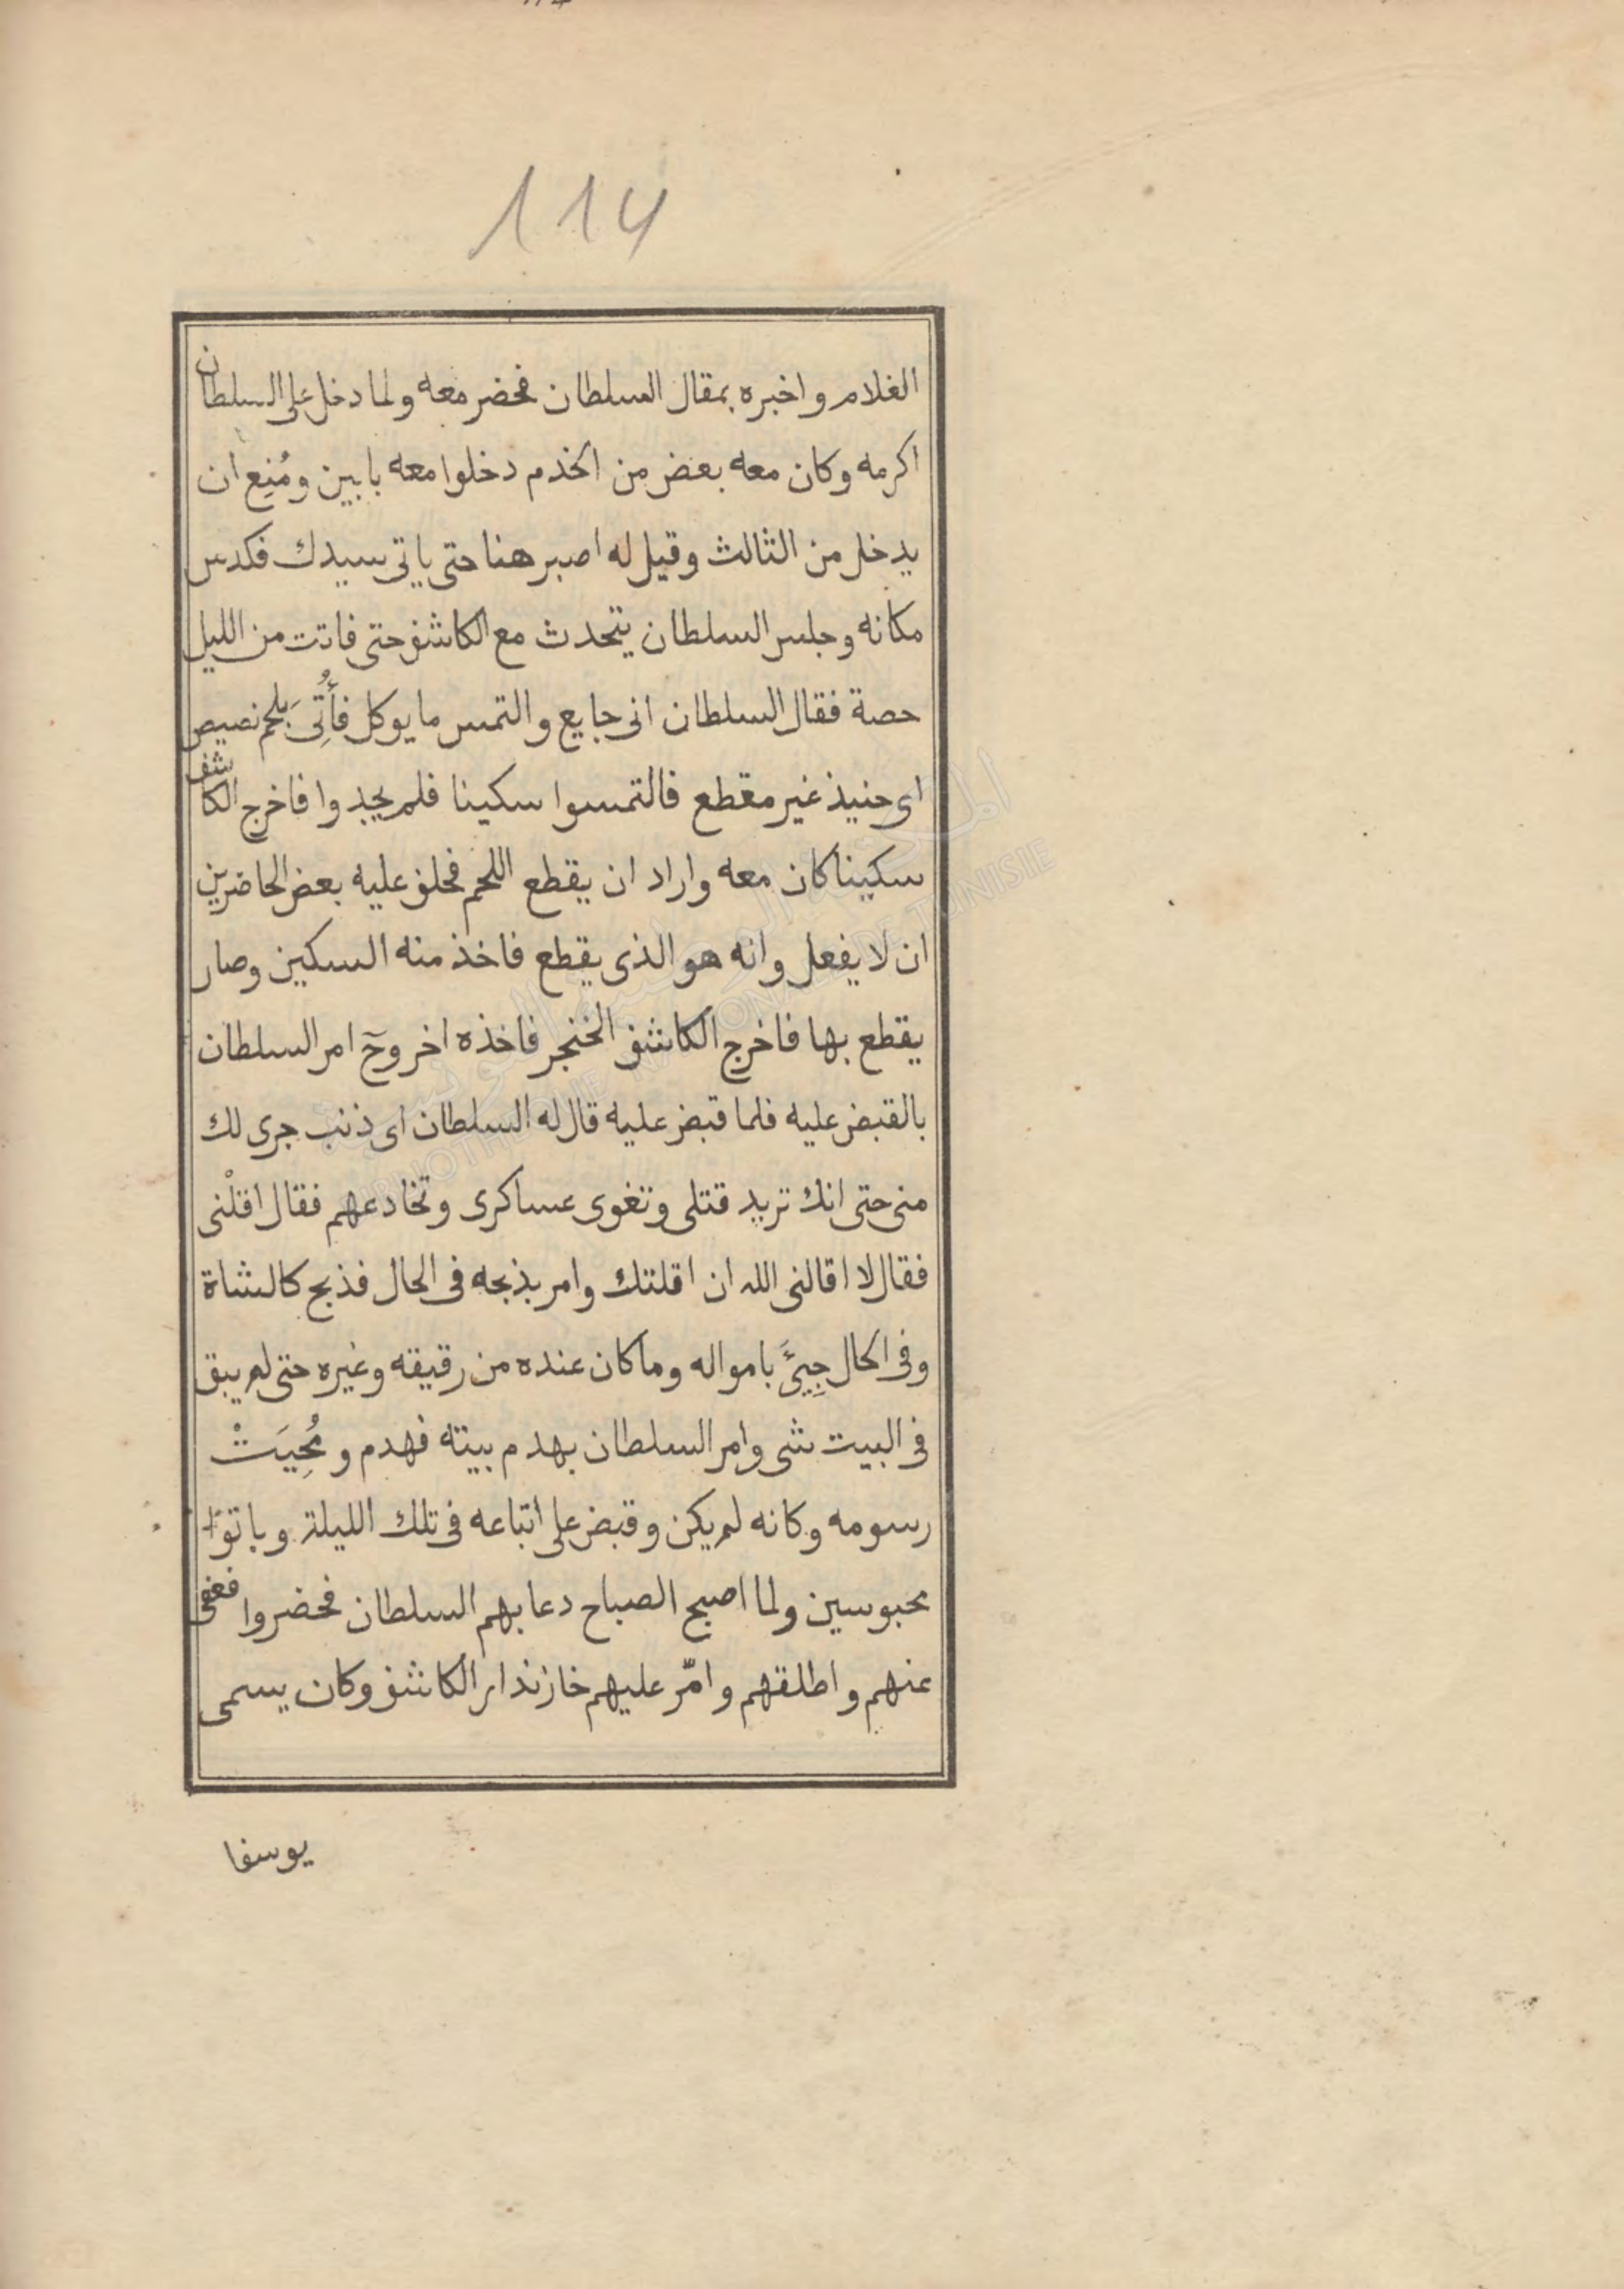 114
الغلام واخبره بمقال السلطان فحضر معه ولما دخل على السلطان
اكرمه وكان معه بعض من الخدم دخلوا معه بابين ومُنِع ان
يدخل من الثالث وقيل له اصبر هنا حتى ياتى سيدك فكدس
مكانه وجلس السلطان يتحدث مع الكاشف حتى فاتت من الليل
حصة فقال السلطان انى جايع والتمس ما يوكل فأُتِىَ بلحم نصيص
اى حنيذ غير مقطع فالتمسوا سكينا فلم يجدوا فاخرج الكاشف
سكينا كان معه واراد ان يقطع اللحم فحلف عليه بعض الحاضرين
ان لا يفعل وانه هو الذى يقطع فاخذ منه السكين وصار
يقطع بها فاخرج الكاشف الخنجر فاخذه اخر وحٓ امر السلطان
بالقبض عليه فلما قبض عليه قال له السلطان اى ذنب جرى لك
منى حتى انك تريد قتلى وتغوى عساكرى وتخادعهم فقال اقلْنى
فقال لا اقالنى الله ان اقلتك وامر بذبحه فى الحال فذبح كالشاة
وفى الحال جِيئَ بامواله وما كان عنده من رقيقه وغيره حتى لم يبق
فى البيت شى وامر السلطان بهدم بيته فهدم ومُحِيَتْ
رسومه وكانه لم يكن وقبض على أتباعه فى تلك الليلة وباتوا
محبوسين ولما اصبح الصباح دعا بهم السلطان فحضروا فعفى
عنهم واطلقهم وامّر عليهم خازندار الكاشف وكان يسمى
يوسفا
المكتبة الوطنية التونسية
BIBLIOTHEQUE NATIONALE DE TUNISIE